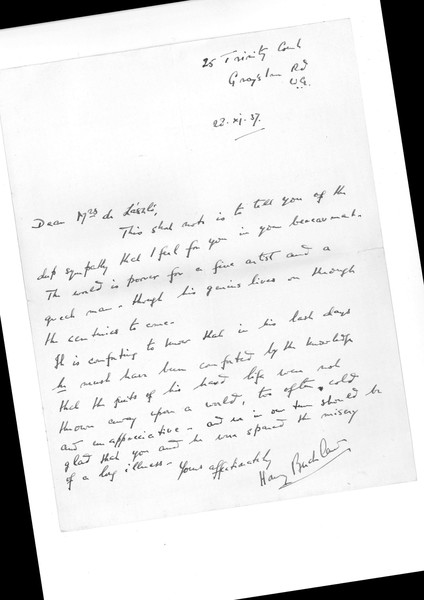 25 Trinity Court
Rd
W.C.
22. xj. 37.
Dear Mrs de László,
This short note is to tell you of the
deep sympathy that I feel for you in your bereavement.
The world is poorer for a fine artist and a
great man - though his genius lives on through
the centuries to come.
It is comforting to know that in his last days
he must have been comforted by the knowledge
that the fruits of his hard life were not
thrown away upon a world, too often, cold
and unappreciative - and we in our turn should be
glad that you and he were spared the misery
of a long illness. Yours affectionately
Harry